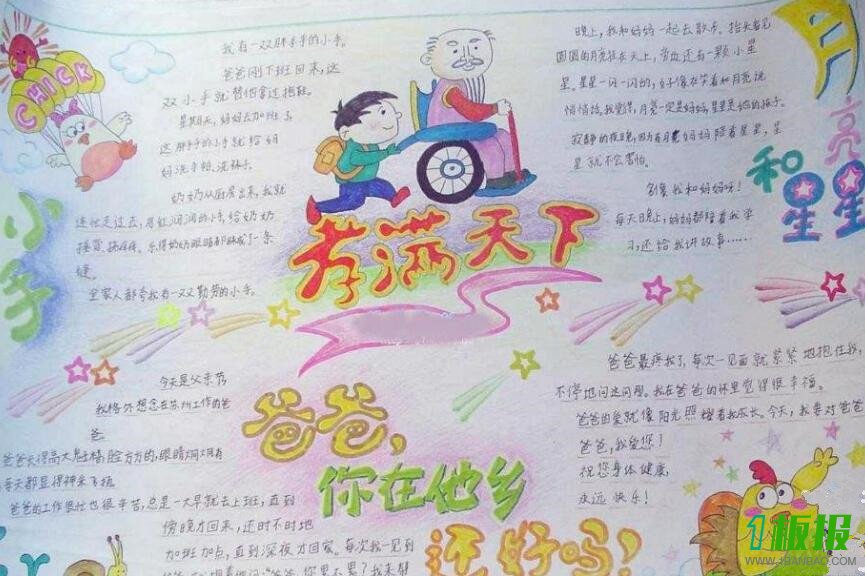 CHICK
小手
我有一双胖乎乎的小手。
爸爸刚下班回来,这
双小手就替他拿过拖鞋。
星期天,妈妈去加班了
这胖乎乎的小手就给妈
妈洗手帕、洗袜子。
奶奶从厨房出来,我就
连忙走过去,用红润润的小手给奶奶
捶背、揉揉。乐得奶奶眼睛都眯成了一条
缝。
全家人都夸我有一双勤劳的小手。
孝满天下
月亮和星星
晚上,我和妈妈一起去散步。抬头看见
圆圆的月亮挂在天上,旁边还有一颗小星
星。星星一闪一闪的,好像在笑着和月亮说
悄悄话。我觉得,月亮一定是妈妈,星星是她的孩子。
寂静的夜晚,因为有月亮妈妈陪着星星,星
星就不会害怕。
就象我和妈妈呀!
每天晚上,妈妈都陪着我学
习,还给我讲故事……
爸爸,
你在他乡
还好吗!
今天是父亲节
我格外想念在苏州工作的爸
爸
爸爸长得高大魁梧,脸方方的,眼睛炯炯有
每天都显得神采飞扬。
爸爸的工作很忙也很辛苦,总是一大早就去上班,直到
傍晚才回来,还时不时地
加班加点,直到深夜才回家。每次我一见到
爸爸
爸爸最疼我了,每次一见面就紧紧地抱住我,
不停地问这问那。我在爸爸的怀里觉得很幸福。
爸爸的爱就像阳光照耀着我成长。今天,我要对爸爸
爸爸,我爱您!
祝您身体健康,
永远快乐!
板报
WWW.1BANBAO.COM